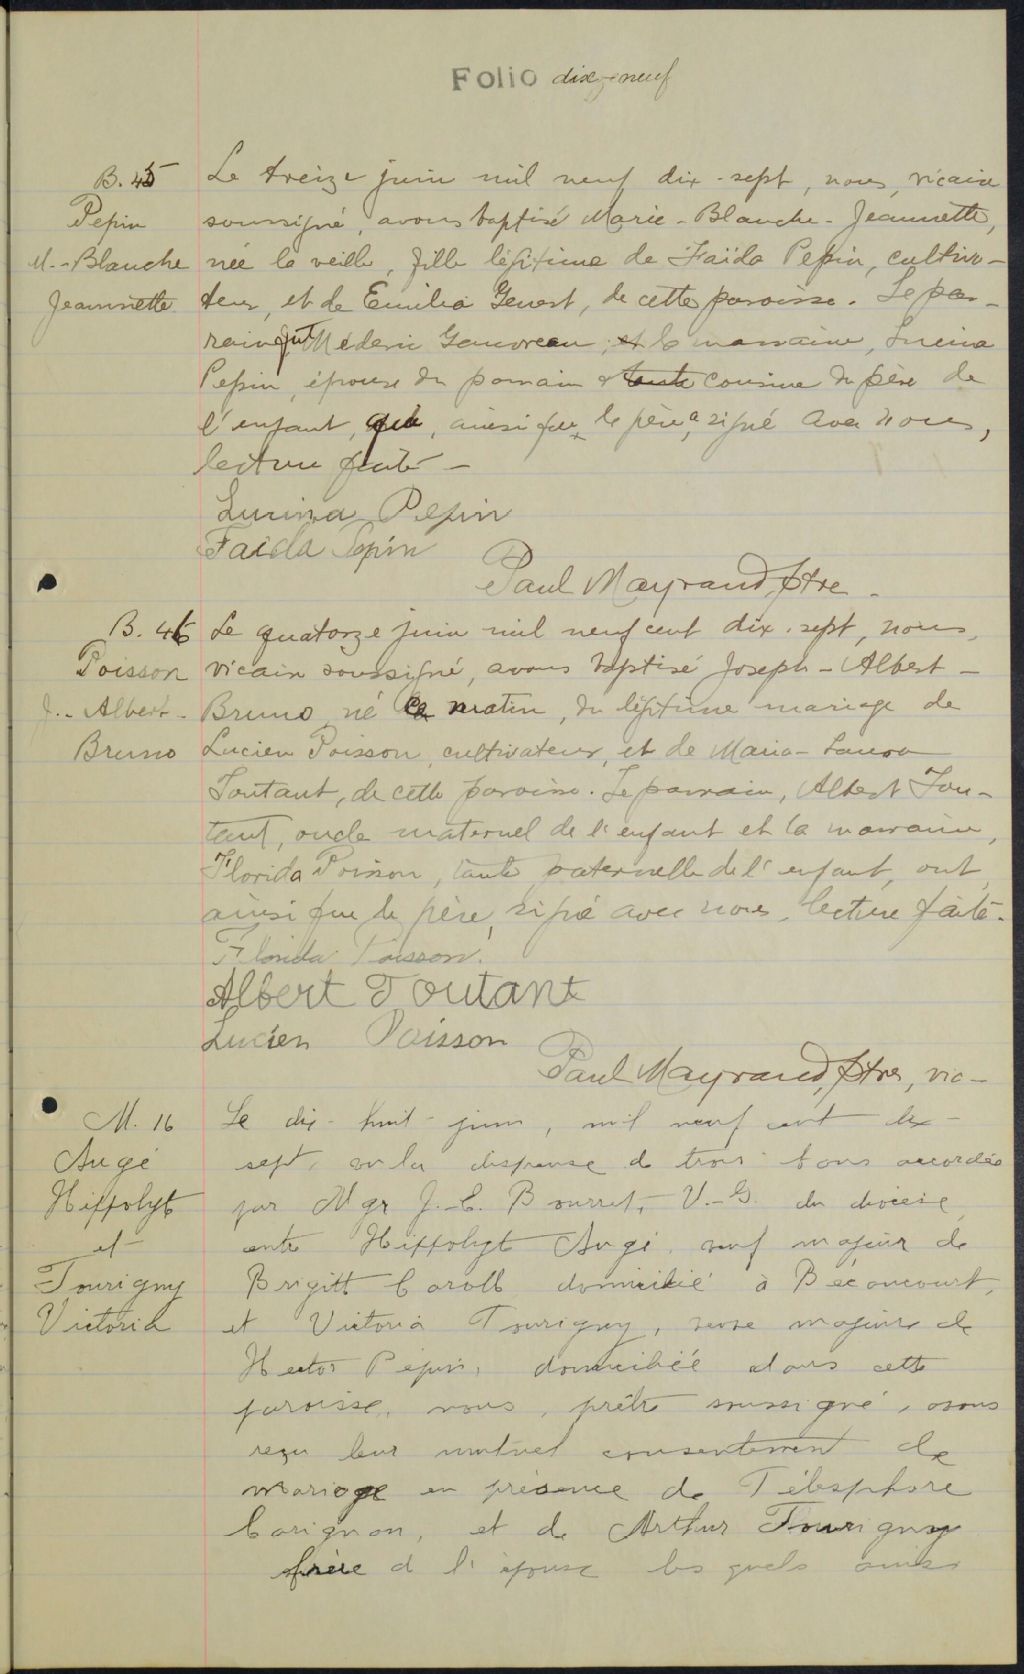 Folio dix-neuf
B. 45
Pepin
M.-Blanche
Jeannette
Le treize juin mil neuf dix-sept, nous, vicaire
soussigné, avons baptisé Marie-Blanche-Jeannette,
née la veille, fille légitime de Faïda Pepin, cultiva-
teur, et de Emilia Genest, de cette paroisse. Le par-
rain fut Mederic Gauvreau, et la marraine, Lucina
Pepin, épouse du parrain & tante cousine du père de
l'enfant, qui, ainsi que le père, a signé avec nous,
lecture faite -
Lucina Pepin
Faida Pepin
Paul Mayrand, ptre.
B. 46
Poisson
J.-Albert-
Bruno
Le quatorze juin mil neuf cent dix-sept, nous,
vicaire soussigné, avons baptisé Joseph-Albert-
Bruno né ce matin, du légitime mariage de
Lucien Poisson, cultivateur, et de Maria-Laura
Toutant, de cette paroisse. Le parrain, Albert Tou-
tant, oncle maternel de l'enfant et la marraine,
Florida Poisson, tante paternelle de l'enfant, ont,
ainsi que le père, signé avec nous, lecture faite.
Florida Poisson
Albert Toutant
Lucien Poisson
Paul Mayrand, ptre, vic-
M. 16
Augé
Hippolyte
et
Tourigny
Victoria
Le dix-huit juin, mil neuf cent dix-
sept, vu la dispense de trois bans accordée
par Mgr J.-C. Bourret, V.-G. du diocèse,
entre Hippolyte Augé, veuf majeur de
Brigitte Caroll domicilié à Bécancourt,
et Victoria Tourigny, veuve majeure de
Hector Pepin, domiciliée dans cette
paroisse, nous, prêtre soussigné, avons
reçu leur mutuel consentement de
mariage en présence de Télesphore
Carignan, et de Arthur Tourigny
frère d l'épouse lesquels ainsi